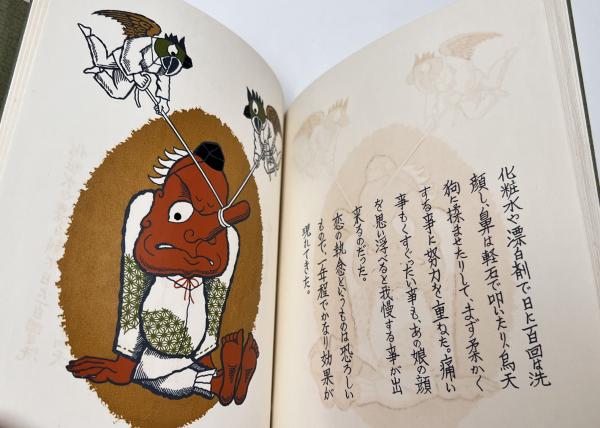 化粧水や漂白剤で日に百回は洗
顔し、鼻は軽石で叩いたり、烏天
狗に揉ませたりして、まず柔かく
する事に努力を重ねた。痛い
事もくすぐったい事も、あの娘の顔
を思い浮べると我慢する事が出
来るのだった。
恋の執念というものは恐ろしい
もので、一年程でかなり効果が
現れてきた。